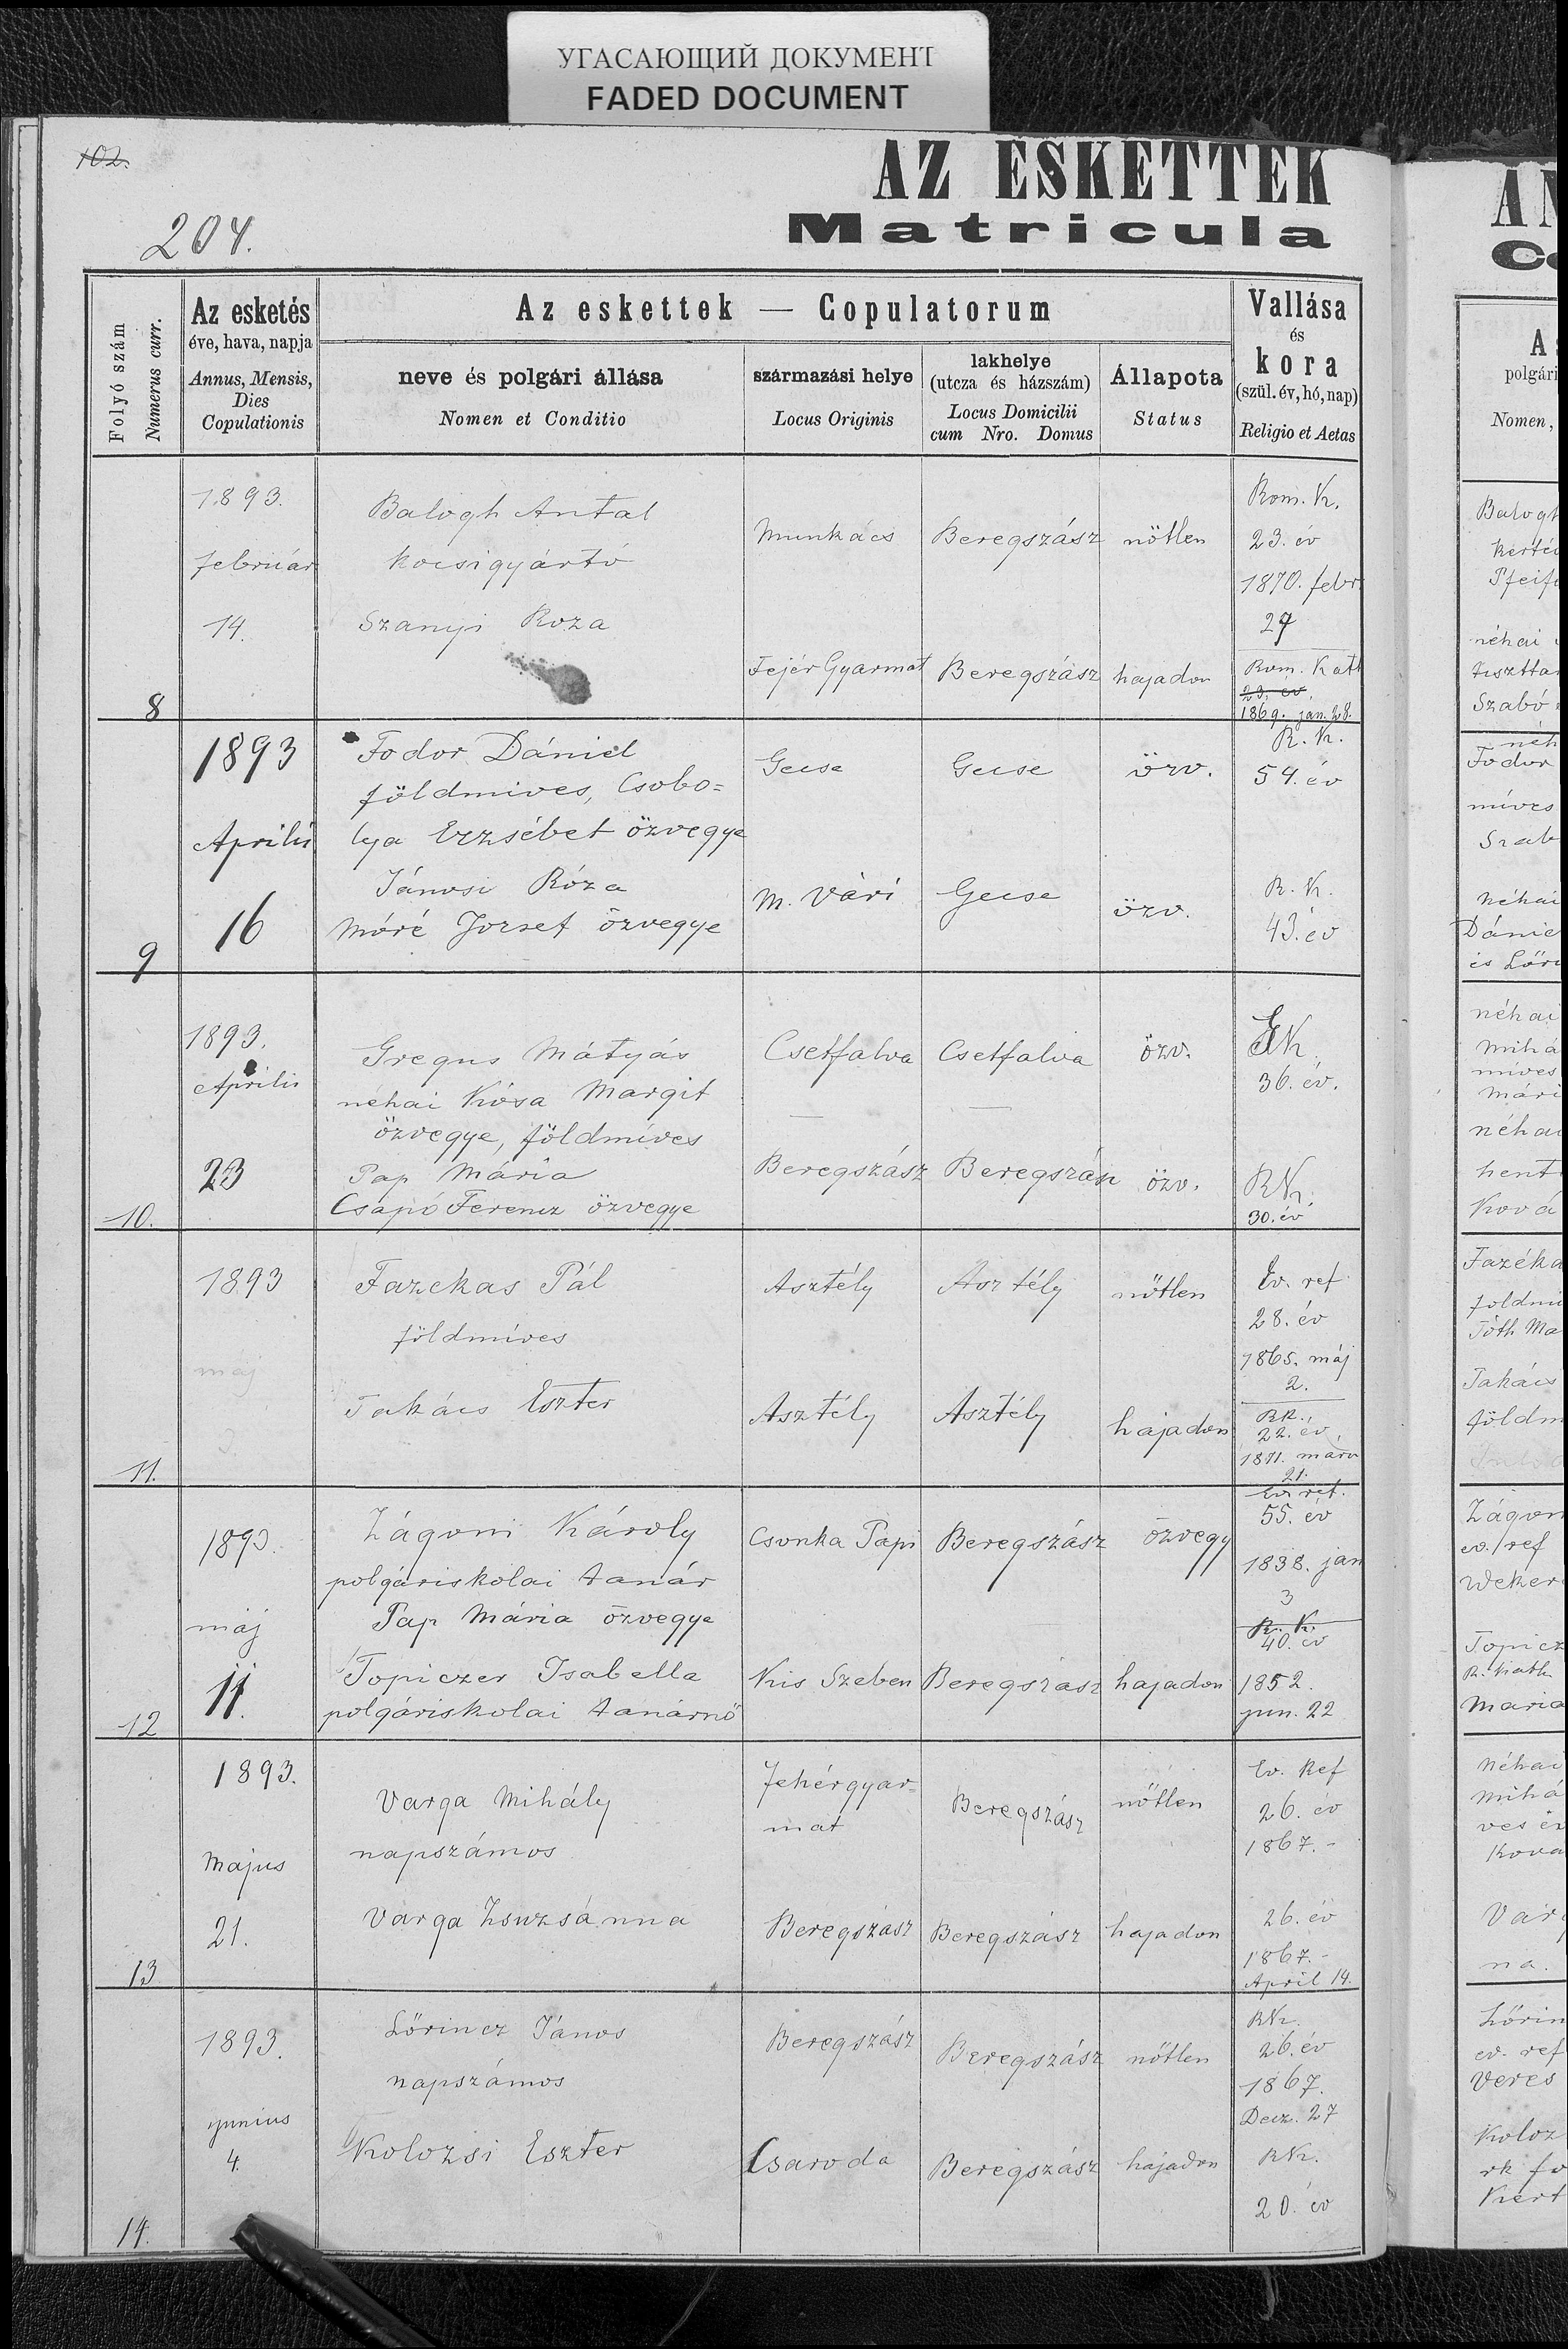 УГАСАЮЩИЙ ДОКУМЕНТ
FADED DOCUMENT
102.
204.
AZ ESKETTEK
Matricula
Folyó szám
Numerus curr.
Az esketés
éve, hava, napja
Annus, Mensis,
Dies
Copulationis
Az eskettek — Copulatorum
neve és polgári állása
Nomen et Conditio
származási helye
Locus Originis
lakhelye
(utcza és házszám)
Locus Domicilii
cum Nro. Domus
Állapota
Status
Vallása
és
kora
(szül. év, hó, nap)
Religio et Aetas
8
1893.
február
14.
Balogh Antal
kocsigyártó
Munkács
Beregszász
nötlen
Rom. K.
23. év
1870. febr.
27
Szanyi Roza
Fejér Gyarmat
Beregszász
hajadon
Rom. Kath
23. év.
1869. jan. 28.
9
1893
Aprilis
16
Fodor Dániel
földmives, Csobo=
lya Erzsébet özvegye
Gecse
Gecse
özv.
R. K.
54. év
Jánosi Róza
Móré Jozsef özvegye
M. Vári
Gecse
özv.
R. K.
43. év
10.
1893.
Aprilis
23
Gregus Mátyás
néhai Kósa Margit
özvegye, földmíves
Csetfalva
Csetfalva
özv.
36. év.
Pap Mária
Csapó Ferencz özvegye
Beregszász
Beregszász
özv.
RK.
30. év
11.
1893
máj
2.
Fazekas Pál
földmíves
Asztély
Asztély
nötlen
Ev. ref
28. év
1865. máj
2.
Takács Eszter
Asztély
Asztély
hajadon
RK.
22. év.
1871. marc
21.
12
1893.
máj
11.
Zágoni Károly
polgáriskolai tanár
Pap Mária özvegye
Csonka Papi
Beregszász
özvegy
Ev. ref.
55. év
1838. jan
3
Topiczer Isabella
polgáriskolai tanárnö
Kis Szeben
Beregszász
hajadon
R. K.
40. év
1852.
jun. 22
13
1893.
Május
21.
Varga Mihály
napszámos
Fehérgyar=
mat
Beregszász
nötlen
Ev. Ref
26. év
1867. -
Varga Zsuzsánna
Beregszász
Beregszász
hajadon
26. év
1867. -
April 14.
14.
1893.
junius
4.
Lőrincz János
napszámos
Beregszász
Beregszász
nötlen
RK.
26. év
1867.
Decz. 27
Kolozsi Eszter
Csaroda
Beregszász
hajadon
RK.
20. év
A
polgári
Nomen,
Balogh
néhai
Szabó
Fodor
míves
Szab
néhai
Dánie
és Lőri
néhai
Mihá
míves
Mári
néhai
hent
Ková
Fazéka
földmí
Tóth Ma
Takács
földm
Zágon
ev. ref
Weker
Topicz
R. Kath.
Maria
Néhai
Mihá
Ková
Varg
na.
Lőrin
ev. ref
Veres
Koloz
rk fö
Kert